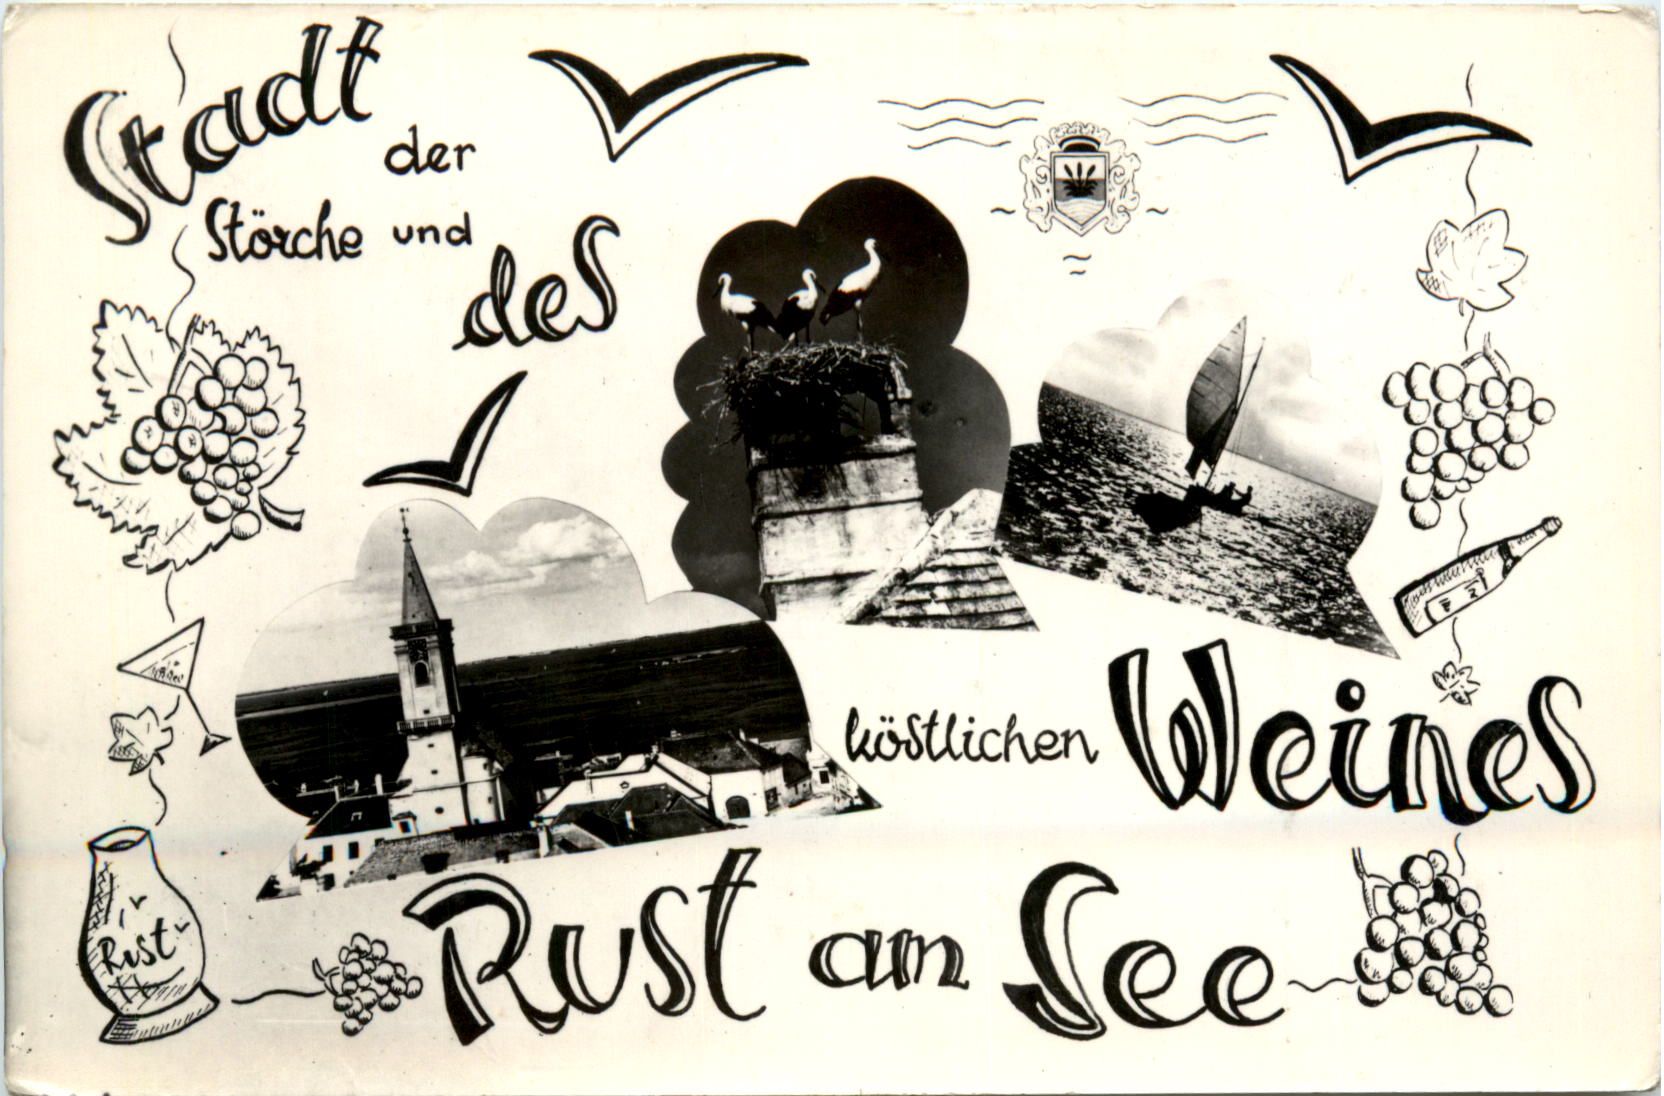 Stadt
der
Störche und
des
köstlichen Weines
Rust am See
Rust